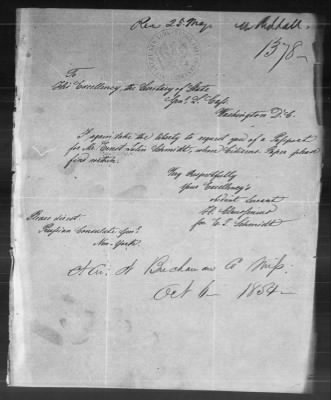 Rec 25 May
1378
To
His Excellency, the Secretary of State
Genl. L. Cass.
Washington D.C.
I again take the liberty to request you of a Passport
for Mr. Ernst Schmidt, whose Citizens Paper please
find within.
Very Respectfully
Your Excellency's
obedient Servant
for E. L. Schmidt
Please direct
Prussian Consulate Genl.
New-York.
Co Miss.
Oct 6 1854